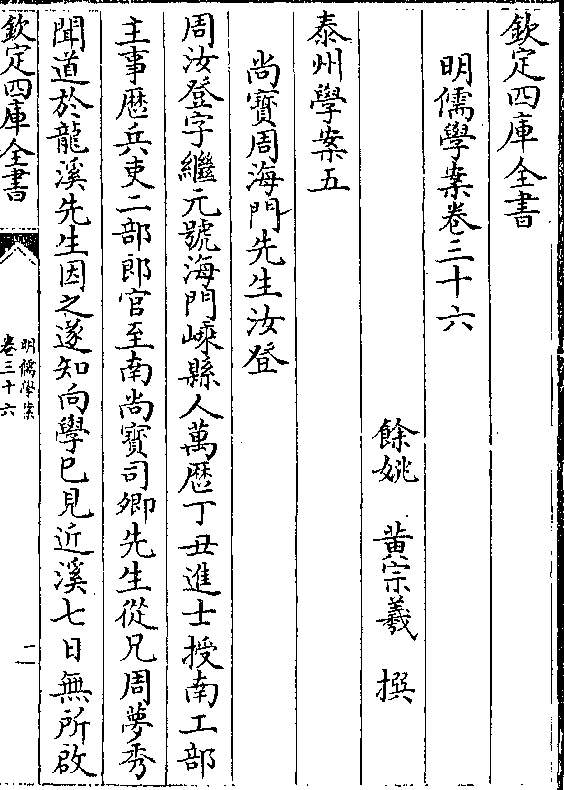 欽定四庫全書
明儒學案卷三十六
餘姚 黃宗羲 撰
泰州學案五
尚寳周海門先生汝登
周汝登字繼元號海門嵊縣人萬厯丁丑進士授南工部
主事厯兵吏二部郎官至南尚寳司卿先生從兄周夢秀
聞道於龍溪先生因之遂知向學已見近溪七日無所啟
欽定四庫全書
明儒學案
卷三十六
一